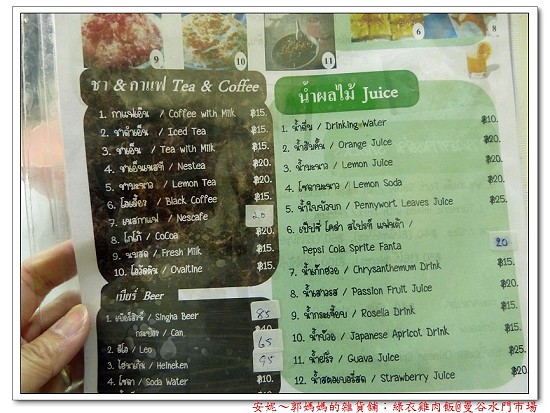 9
10
11
6
8
ชา & กาแฟ Tea & Coffee
1. กาแฟเย็น / Coffee with Milk ฿15.
2. ชาดำเย็น / Iced Tea ฿15.
3. ชาเย็น / Tea with Milk ฿15.
4. ชาเย็นเนสที / Nestea ฿20.
5. ชามะนาว / Lemon Tea ฿20.
6. โอเลี้ยง / Black Coffee ฿15.
7. เนสกาแฟ / Nescafe 20
8. โกโก้ / CoCoa ฿20.
9. นมสด / Fresh Milk ฿15.
10. โอวัลติน / Ovaltine ฿15.
เบียร์ Beer
1. เบียร์สิงห์ / Singha Beer 85
กระป๋อง / Can
2. ลีโอ / Leo 65
3. ไฮนาเก้น / Heineken 95
4. โซดา / Soda Water ฿10.
น้ำผลไม้ Juice
1. น้ำดื่ม / Drinking Water ฿10.
2. น้ำส้มคั้น / Orange Juice ฿20.
3. น้ำมะนาว / Lemon Juice ฿20.
4. โซดามะนาว / Lemon Soda ฿20.
5. น้ำใบบัวบก / Pennywort Leaves Juice ฿25.
6. เป๊ปซี่ โคล่า สไปรท์ แฟนต้า /
Pepsi Cola Sprite Fanta 20
7. น้ำเก๊กฮวย / Chrysanthemum Drink ฿15.
8. น้ำเสาวรส / Passion Fruit Juice ฿20.
9. น้ำกระเจี๊ยบ / Rosella Drink ฿15.
10. น้ำบ๊วย / Japanese Apricot Drink ฿15.
11. น้ำฝรั่ง / Guava Juice ฿15.
12. น้ำสตอเบอรี่สด / Strawberry Juice
安妮～郭媽媽的雜貨舖：綠衣雞肉飯@曼谷水門市場